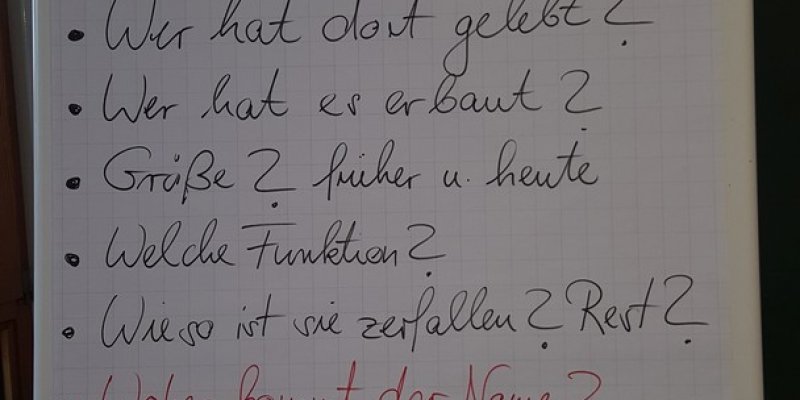 • Wer hat dort gelebt?
• Wer hat es erbaut?
• Größe? früher u. heute
• Welche Funktion?
• Wieso ist sie zerfallen? Rest?
• Woher kommt der Name?